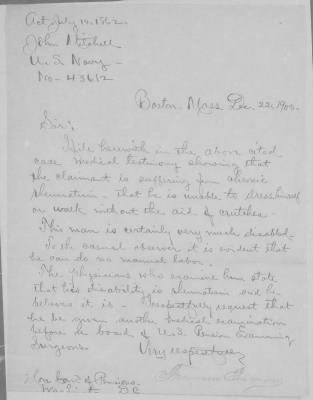 Act July 14. 1862.
John Mitchell
U.S. Navy
No- 43612
Boston Mass Dec. 22, 1900.
Sir:
I file herewith in the above cited
case medical testimony showing that
the claimant is suffering from chronic
rheumatism - that he is unable to dress himself
or walk without the aid of crutches.
This man is certainly very much disabled.
To the casual observer it is evident that
he can do no manual labor.
The physicians who examine him state
that his disability is rheumatism and he
believes it is - I respectfully request that
he be given another medical examination
before the board of U.S. Pension Examining
Surgeons.
Very respectfully
Hon. Com'r of Pensions
D.C.